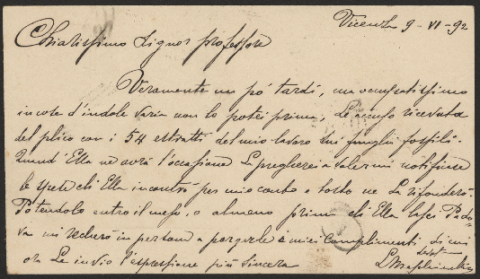 Vicenza 9-VI-92
Chiarissimo Signor professore
Veramente un pó tardi, ma
in cose d'indole varia non lo potei prima, Le accuso ricevuta
del plico con i 54 estratti del mio lavoro sui funghi fossili.
Quand'Ella ne avrà l'occasione La pregherei a volermi notificare
le spese ch'Ella incontrò per mio conto e tosto ne La rifonderò.
Potendolo entro il mese, o almeno prima ch'Ella lasci Pado-
va mi recherò in persona a porgerle i miei complimenti. Di mi
ora Le invio l'espressione più sincera